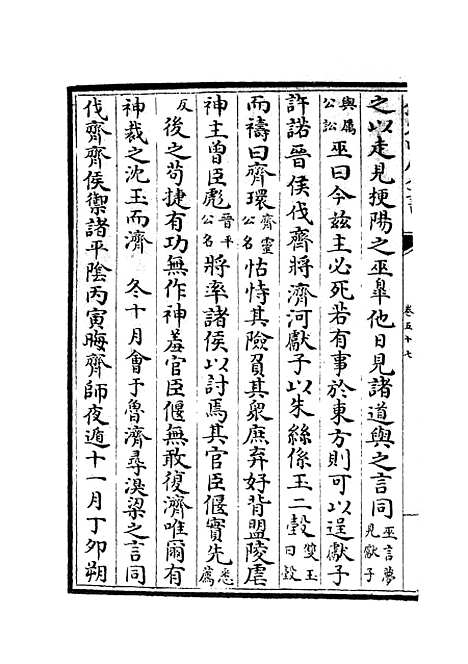 之以走見挭陽之巫臯他日見諸道與之言同巫言夢見獻子
與厲公訟巫曰今兹主必死若有事於東方則可以逞獻子
許諾晉侯伐齊將濟河獻子以朱絲係玉二瑴雙玉曰瑴
而禱曰齊環齊靈公名怙恃其險負其衆庶弃好背盟陵虐
神主曾臣彪晉平公名將率諸侯以討焉其官臣偃實先悉薦
反後之茍捷有功無作神羞官臣偃無敢復濟唯爾有
神裁之沈玉而濟 冬十月會于魯濟尋湨梁之言同
伐齊齊侯禦諸平陰丙寅晦齊師夜遁十一月丁卯朔
卷五十七